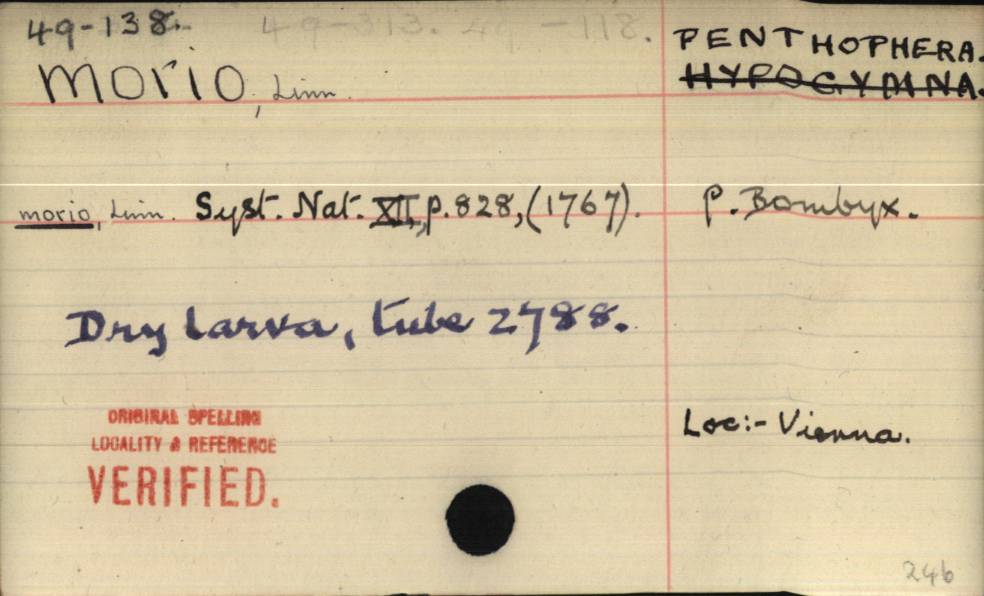 49-138. 49-313. 49 -118.
PENTHOPHERA.
morio, Linn. HYPOGYMNA.
morio, Linn. Syst. Nat. XII, p.828, (1767). P. Bombyx.
Dry larva, tube 2788.
ORIGINAL SPELLING
LOCALITY & REFERENCE
VERIFIED.
Loc:- Vienna.
246